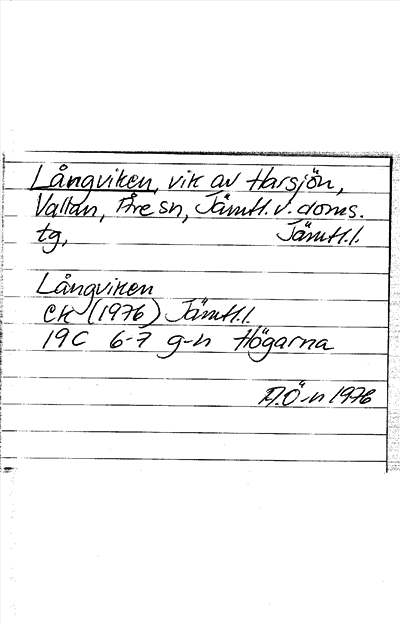 Långviken, vik av Harsjön,
Vallan, Åre sn, Jämtl. v. doms.
tg, Jämtl.l.
Långviken
EK (1976) Jämtl.l.
19C 6-7 g-h Högarna
Ö-n 1976